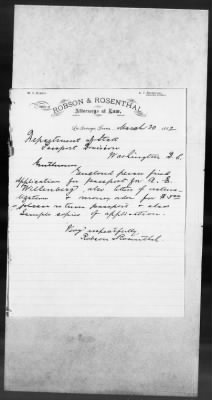 ROBSON & ROSENTHAL
Attorneys at Law.
March 30 1892
Department of State
Passport Division
Washington D. C.
Gentlemen
Enclosed please find
application for passport for A. E.
also letters of natura-
lization & money order for
please return passport & also
sample copies of application.
Very respectfully
Robson & Rosenthal.